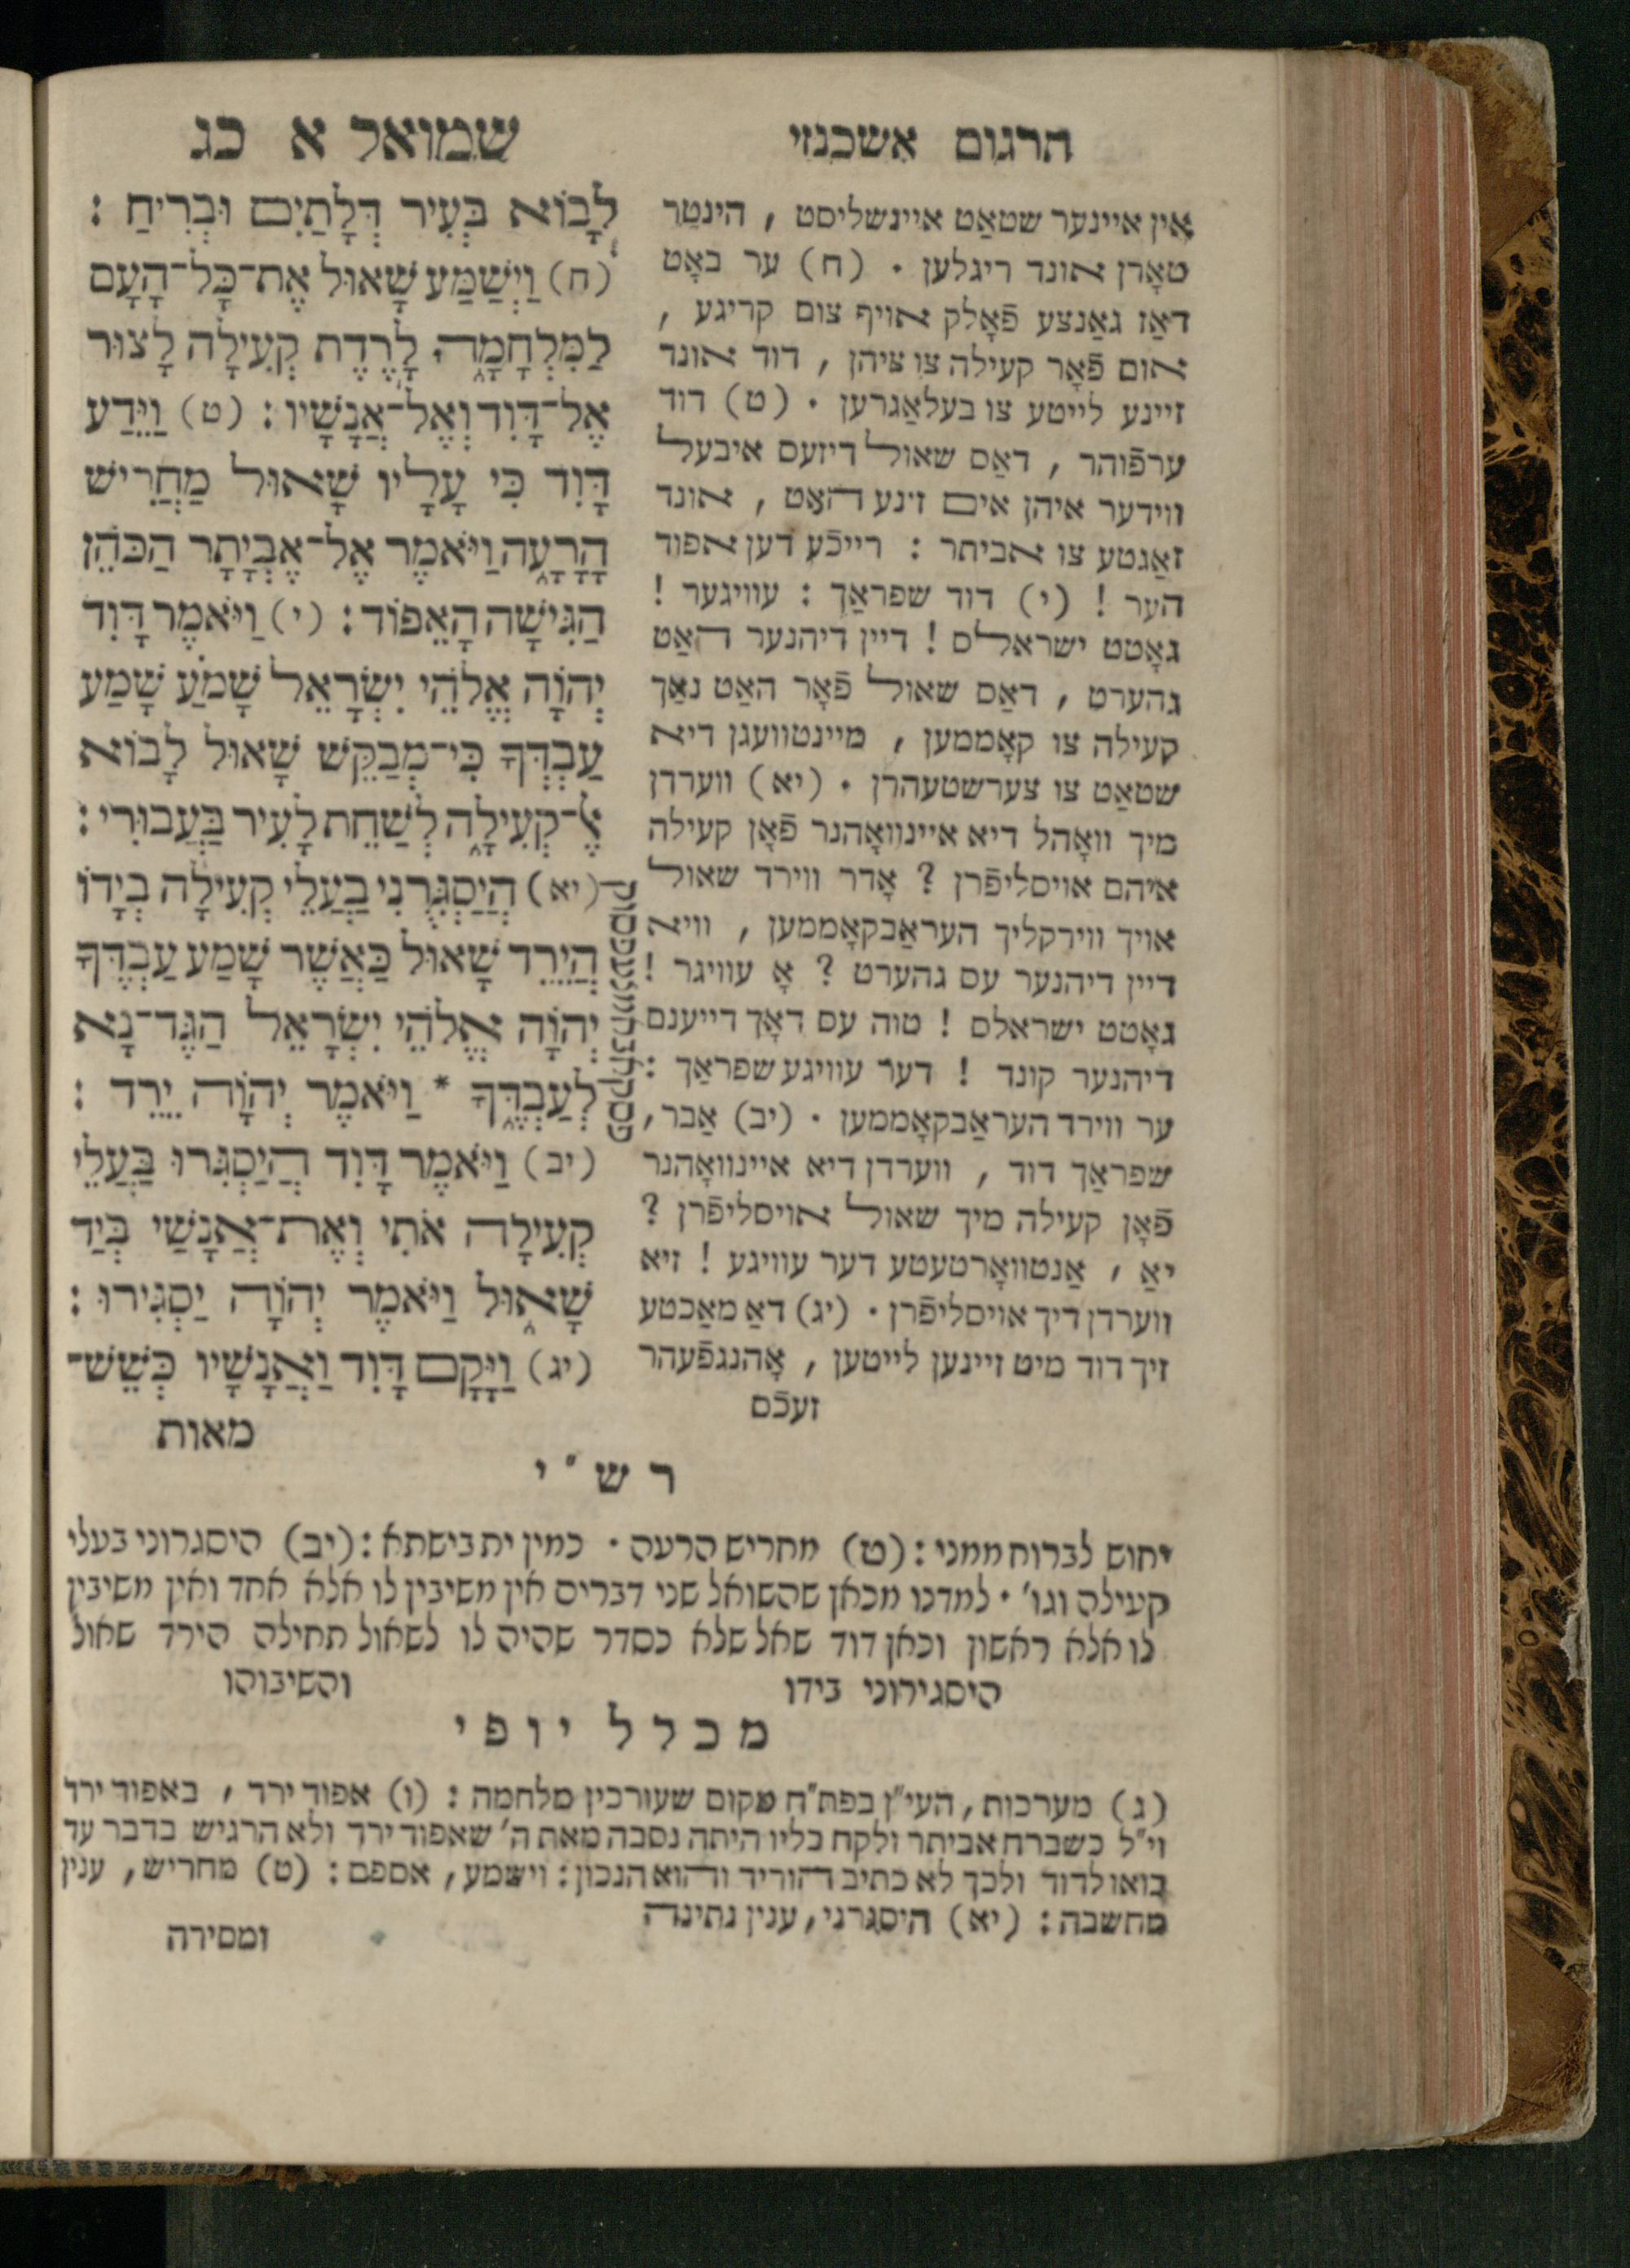 תרגום אשכנזי
אין איינער שטאַט איינשליסט , הינטר
טאָרן אונד ריגלען . (ח) ער באָט
דאַז גאַנצע פֿאָלק אויף צום קריגע ,
אום פֿאָר קעילה צו ציהן , דוד אונד
זיינע לייטע צו בעלאַגרען . (ט) דוד
ערפֿוהר , דאַס שאול דיזעס איבעל
ווידער איהן אים זינע האַט , אונד
זאַגטע צו אביתר : רייכֿע דען אפוד
הער ! (י) דוד שפראַך : עוויגער !
גאָטט ישראלס ! דיין דיהנער האַט
גהערט , דאַס שאול פֿאָר האַט נאַך
קעילה צו קאָממען , מיינטוועגן דיא
שטאַט צו צערשטעהרן . (יא) ווערדן
מיך וואָהל דיא איינוואָהנר פֿאָן קעילה
איהם אויסליפֿרן ? אָדר ווירד שאול
אויך ווירקליך העראַבקאָממען , וויא
דיין דיהנער עס גהערט ? אָ עוויגר !
גאָטט ישראלס ! טוה עס דאָך דייענם
דיהנער קונד ! דער עוויגע שפראַך :
ער ווירד העראַבקאָממען . (יב) אַבר ,
שפראַך דוד , ווערדן דיא איינוואָהנר
פֿאָן קעילה מיך שאול אויסליפֿרן ?
יאַ , אַנטוואָרטעטע דער עוויגע ! זיא
ווערדן דיך אויסליפֿרן . (יג) דאַ מאַכטע
זיך דוד מיט זיינען לייטען , אָהנגפֿעהר
זעכֿס
שמואל א כג
לָבוֹא בְּעִיר דְּלָתַיִם וּבְרִיחַ :
(ח) וַיְשַׁמַּע שָׁאוּל אֶת־כָּל־הָעָם
לַמִּלְחָמָה לָרֶדֶת קְעִילָה לָצוּר
אֶל־דָּוִד וְאֶל־אֲנָשָׁיו : (ט) וַיֵּדַע
דָּוִד כִּי עָלָיו שָׁאוּל מַחֲרִישׁ
הָרָעָה וַיֹּאמֶר אֶל־אֶבְיָתָר הַכֹּהֵן
הַגִּישָׁה הָאֵפוֹד : (י) וַיֹּאמֶר דָּוִד
יְהוָֹה אֱלֹהֵי יִשְׂרָאֵל שָׁמֹעַ שָׁמַע
עַבְדְּךָ כִּי־מְבַקֵּשׁ שָׁאוּל לָבוֹא
אֶל־קְעִילָה לְשַׁחֵת לָעִיר בַּעֲבוּרִי :
(יא) הֲיַסְגִּרֻנִי בַעֲלֵי קְעִילָה בְיָדוֹ
הֲיֵרֵד שָׁאוּל כַּאֲשֶׁר שָׁמַע עַבְדֶּךָ
יְהוָֹה אֱלֹהֵי יִשְׂרָאֵל הַגֶּד־נָא
לְעַבְדֶּךָ * וַיֹּאמֶר יְהוָֹה יֵרֵד :
(יב) וַיֹּאמֶר דָּוִד הֲיַסְגִּרוּ בַּעֲלֵי
קְעִילָה אֹתִי וְאֶת־אֲנָשַׁי בְּיַד
שָׁאוּל וַיֹּאמֶר יְהוָֹה יַסְגִּירוּ :
(יג) וַיָּקָם דָּוִד וַאֲנָשָׁיו כְּשֵׁשׁ־
מאות
רש"י
יחוש לברוח ממני : (ט) מחריש הרעה . כמין ית בישתא : (יב) היסגרוני בעלי
קעילה וגו' . למדנו מכאן שהשואל שני דברים אין משיבין לו אלא אחד ואין משיבין
לו אלא ראשון וכאן דוד שאל שלא כסדר שהיה לו לשאול תחילה הירד שאול
היסגירוני בידו והשיבוהו
מכלל יופי
(ג) מערכות , העי"ן בפת"ח מקום שעורכין מלחמה : (ו) אפוד ירד , באפוד ירד
וי"ל כשברח אביתר ולקח כליו היתה נסבה מאת ה' שאפוד ירד ולא הרגיש בדבר עד
בואו לדוד ולכך לא כתיב הוריד והוא הנכון : וישמע , אספם : (ט) מחריש , ענין
מחשבה : (יא) היסגרני , ענין נתינה
ומסירה